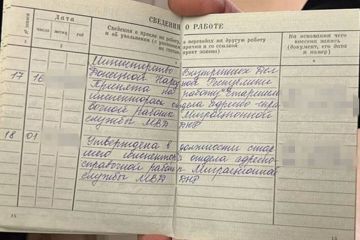 СВЕДЕНИЯ О РАБОТЕ
№ записи
Дата
число
месяц
год
Сведения о приеме на работу, о переводах на другую работу
и об увольнении (с указанием причин и со ссылкой
на статью, пункт закона)
На основании чего
внесена запись
(документ, его дата
и номер)
1
2
3
4
Министерство Внутренних Дел
Донецкой Народной Республики
17
16
Принята на работу старшим
инспектором отдела адресно-спра-
вочной работы Миграционной
службы МВД ДНР
18
01
Утверждена в должности стар-
шего инспектора отдела адресно-
справочной работы Миграционной
службы МВД ДНР
14
15